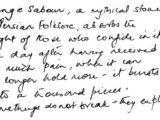 nge Sabour, a mythical stone
ersian Folklore, absorbs the
ght of those who confide in it
day after having received
much pain, when it can
longer hold more - it bursts
to a thousand pieces!
methings do not break - they expl